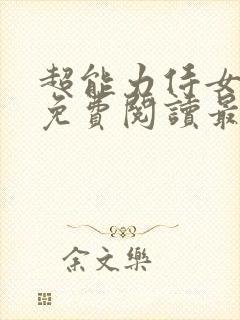 超能力侍女
免費閱讀最
余文樂